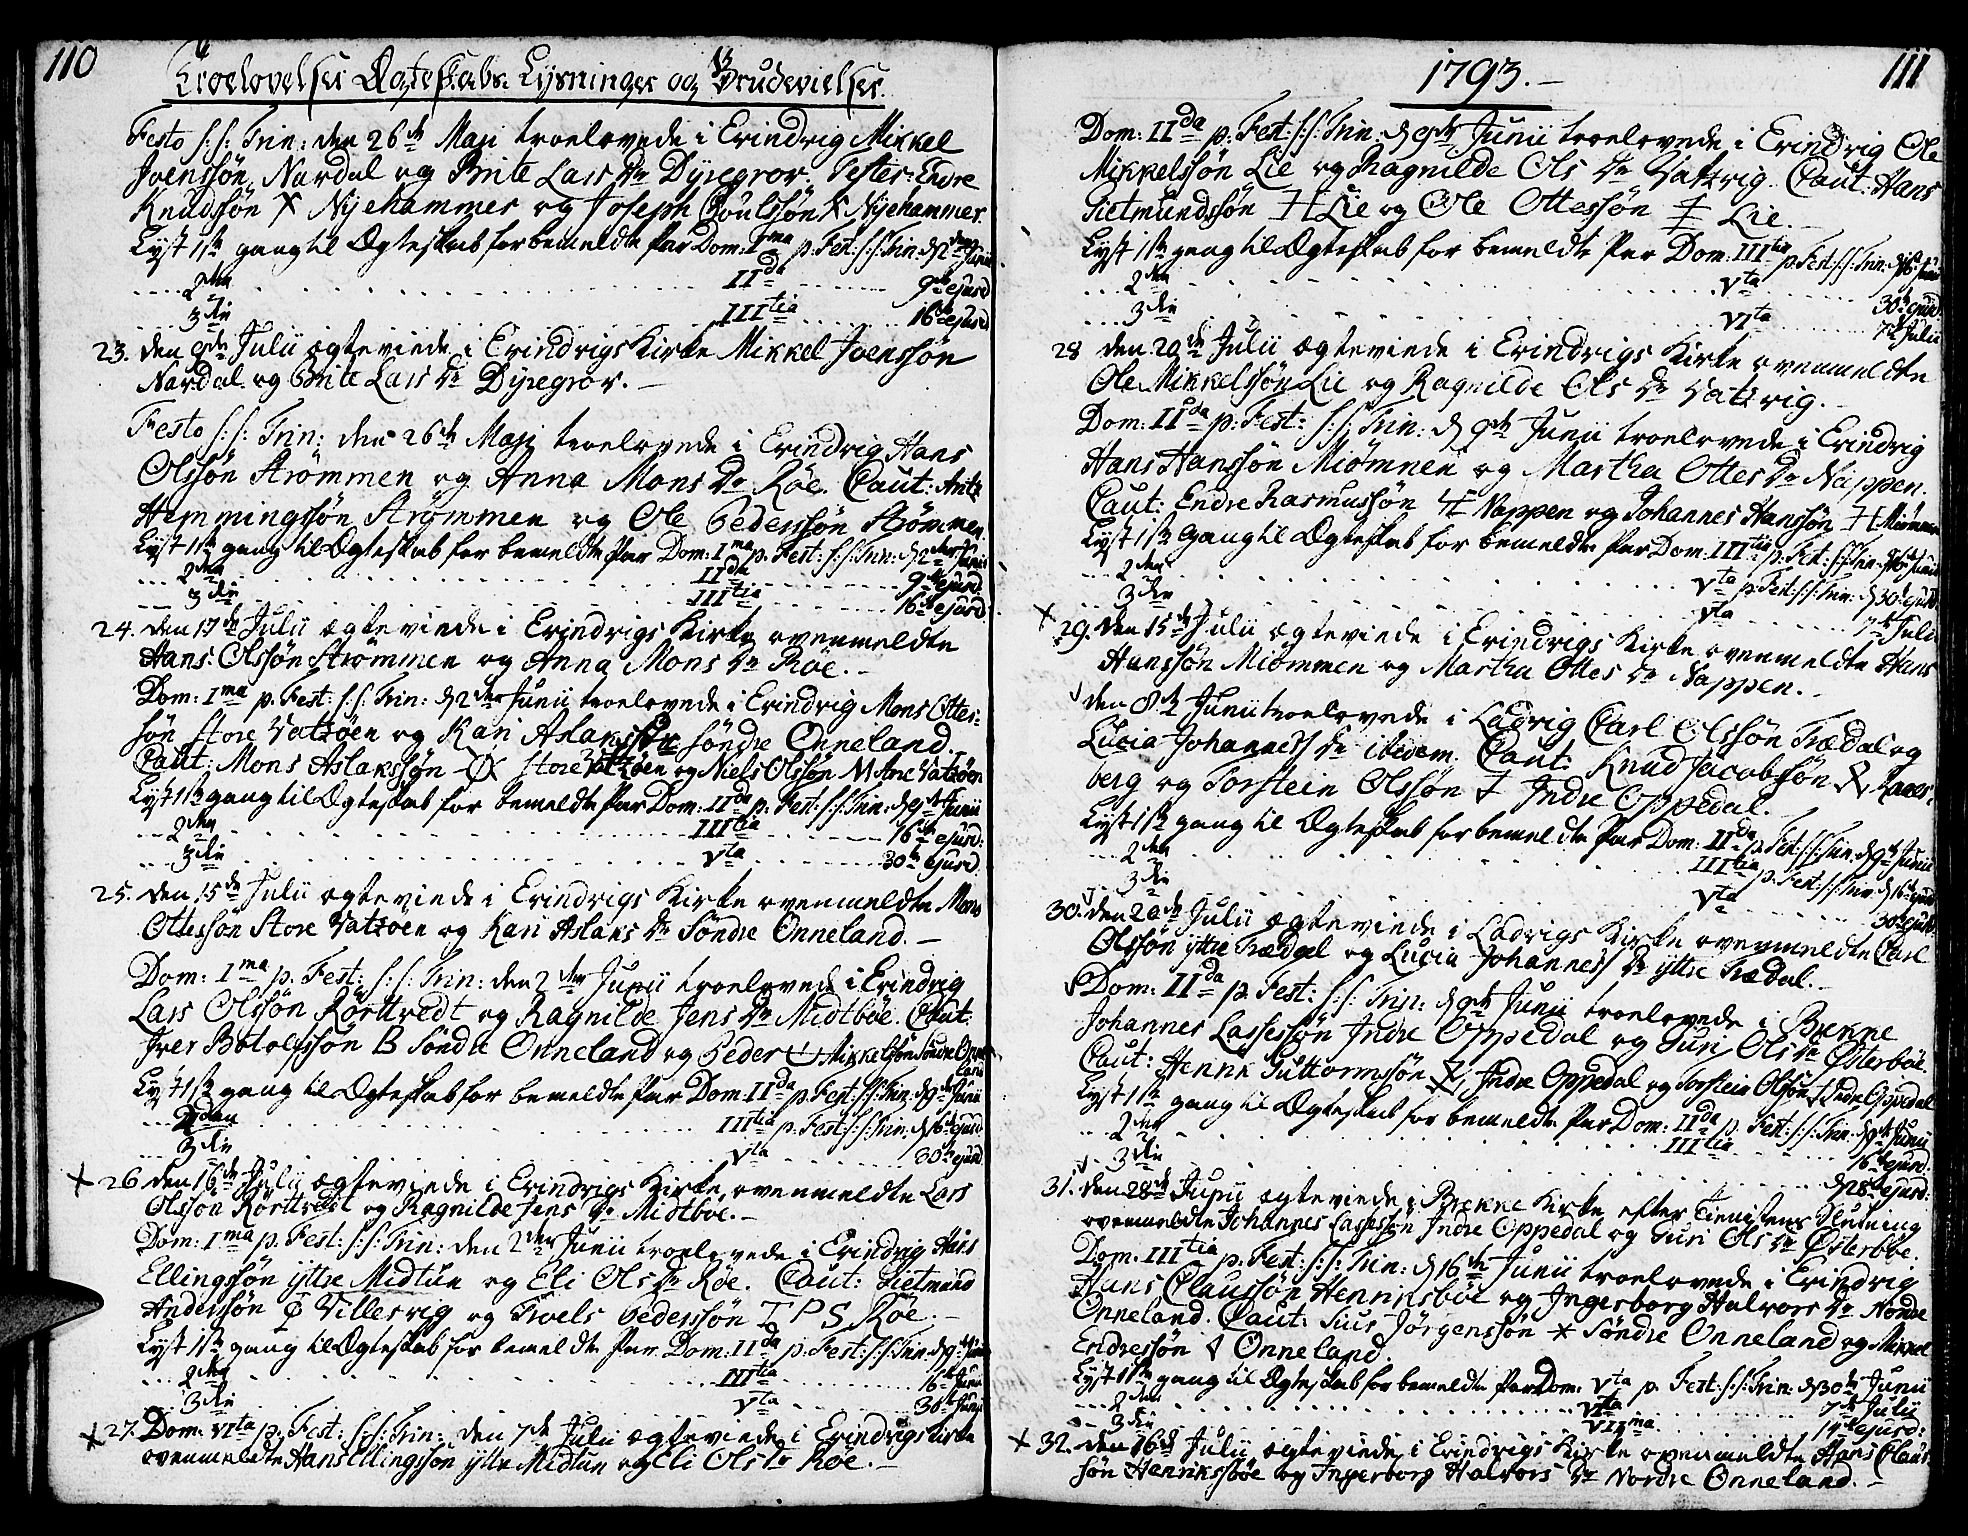 110
Troelovelser Ægteskabs: Lysninger og Brudevielser.
Festo S: S: Trin: den 26de Maji troelovede i Eivindvig Mikkel
Joenssön Nardal og Brite Lars Dr Dyregrov. Tester: Endre
Knudssön X Nyehammer og Joseph Poulssön X Nyehammer.
Lyst 1ste gang til Ægteskab for bemeldte Par Dom: Ima p: Fest: S: S: Trin: d 2den Junii
2den IIda 9de ejusd
3die IIItia 16de ejusd
23. den 9de Julii ægteviede i Eivindvigs Kirke Mikkel Joenssön
Nardal og Brite Lars Dr Dyregrov. —
Festo S: S: Trin: den 26de Maji troelovede i Eivindvig Hans
Olssön Strömmen og Anna Mons Dr Röe. Caut: Antz
Hemmingssön Strömmen og Ole Pederssön Strömmen.
Lyst 1ste gang til Ægteskab for bemeldte Par Dom: Ima p: Fest: S: S: Trin: d 2den Junii
2den IIda 9de ejusd:
3die IIItia 16de ejusd:
24. den 17de Julii ægteviede i Eivindvigs Kirke ovenmeldte
Hans Olssön Strömmen og Anna Mons Dr Röe. —
Dom: Ima p. Fest: S: S: Trin: d 2den Junii troelovede i Eivindvig Mons Ottes-
sön Store Vatzöen og Kari Aslaks Dr Söndre Onneland.
Caut: Mons Aslakssön Store Vatzöen og Niels Olssön Vatzöen
Lyst 1ste gang til Ægteskab for bemeldte Par Dom: IIda p: Fest: S: S: Trin: d 9de Junii
2den IIItia 16de ejusd:
3die Vta 30te ejusd
25. den 15de Julii ægteviede i Eivindvigs Kirke ovenmeldte Mons
Ottessön Store Vatzöen og Kari Aslaks Dr Söndre Onneland. —
Dom: Ima p: Fest: S: S: Trin: den 2den Junii troelovede i Eivindvig
Lars Olssön Rörtvedt og Ragnilde Jens Dr Midtböe. Caut:
Iver Botolfssön B Söndre Onneland og Peder Mikkelssön Söndre Onne-
land
Lyst 1ste gang til Ægteskab for bemeldte Par Dom: IIda p: Fest: S: S: Trin: d 9de Junii
2den IIItia p: Fest: S: S: Trin: d 16de ejusd
3die Vta 30te ejusd:
26 den 16de Julii ægteviede i Eivindvigs Kirke ovenmeldte Lars
Olssön Rörtvedt og Ragnilde Jens Dr Midtböe. —
Dom: Ima p: Fest: S: S: Trin: den 2den Junii troelovede i Eivindvig Hans
Ellingssön yttre Midtun og Eli Ols Dr Röe. Caut: Gietmund
Anderssön Villesvig og Troels Pederssön T P S Röe. —
Lyst 1ste gang til Ægteskab for bemeldte Par Dom: IIda p: Fest: S: S: Trin: d 9de Junii
2den IIItia 16de Junii
3die Vta 30te Junii
27. Dom: VIta p: Fest: S: S: Trin: den 7de Julii ægteviede i Eivindvigs Kirke
ovenmeldte Hans Ellingssön yttre Midtun og Eli Ols Dr Röe. —
1793. —
111
Dom: IIda p: Fest: S: S: Trin: d 9de Junii troelovede i Eivindvig Ole
Mikkelssön Lie og Ragnilde Ols Dr Vatzvig. Caut: Hans
Gietmundssön H Lie og Ole Ottessön Lie
Lyst 1ste gang til Ægteskab for bemeldte Par Dom: IIItia p: Fest: S: S: Trin: d 16de Junii
2den Vta 30te ejusd:
3die VIta 7de Julii
28 den 20de Julii ægteviede i Eivindvigs Kirke ovenmeldte
Ole Mikkelssön Lie og Ragnilde Ols Dr Vatzvig. —
Dom: IIda p: Fest: S: S: Trin: d 9de Junii troelovede i Eivindvig
Hans Hanssön Miömmen og Martha Ottes Dr Nappen.
Caut: Endre Rasmussön Nappen og Johannes Hanssön H Miömmen
Lyst 1ste gang til Ægteskab for bemeldte Par Dom: IIItia p: Fest: S: S: Trin: d 16de Junii
2den Vta p: Fest: S: S: Trin: d 30te ejusd:
3die Vta 7de Julii
29. den 15de Julii ægteviede i Eivindvigs Kirke ovenmeldte Hans
Hanssön Miömmen og Martha Ottes Dr Nappen. —
den 8de Junii troelovede i Ladvig Carl Olssön Trædal og
Lucia Johannes Dr ibidem. Caut: Knud Jacobssön Ranes-
berg og Torstein Olssön Indre Oppedal. —
Lyst 1ste gang til Ægteskab for bemeldte Par Dom: IIda p: Fest: S: S: Trin: d 9de Junii
2den IIItia p: Fest: S: S: Trin: d 16de ejusd
3die Vta 30te ejusd:
30. den 20de Julii ægteviede i Ladvigs Kirke ovenmeldte Carl
Olssön yttre Trædal og Lucia Johannes Dr yttre Trædal. —
Dom: IIda p: Fest: S: S: Trin: d 9de Junii troelovede i Brekke
Johannes Lassessön Indre Oppedal og Guri Ols Dr Österböe.
Caut: Henrik Guttormssön Indre Oppedal og Torstein Olssön Indre Oppedal
Lyst 1ste gang til Ægteskab for bemeldte Par Dom: IIda p: Fest: S: S: Trin: d 9de Junii
2den IIItia 16de ejusd:
3die d 28de ejusd:
31. den 28de Junii ægteviede i Brekke Kirke efter Tienistens Slutning
ovenmeldte Johannes Lassessön Indre Oppedal og Guri Ols Dr Österböe.
Dom: IIItia p: Fest: S: S: Trin: d 16de Junii troelovede i Eivindvig
Hans Claussön Henriksböe og Ingerborg Halvors Dr Nordre
Onneland. Caut: Siur Jörgenssön Söndre Onneland og Mikkel
Endressön Onneland.
Lyst 1ste gang til Ægteskab for bemeldte Par Dom: Vta p: Fest: S: S: Trin: d 30te Junii
2den VIta 7de Julii
3die VIIma 14de ejusd:
32. den 16de Julii ægteviede i Eivindvigs Kirke ovenmeldte Hans Claus-
sön Henriksböe og Ingerborg Halvors Dr Nordre Onneland. —